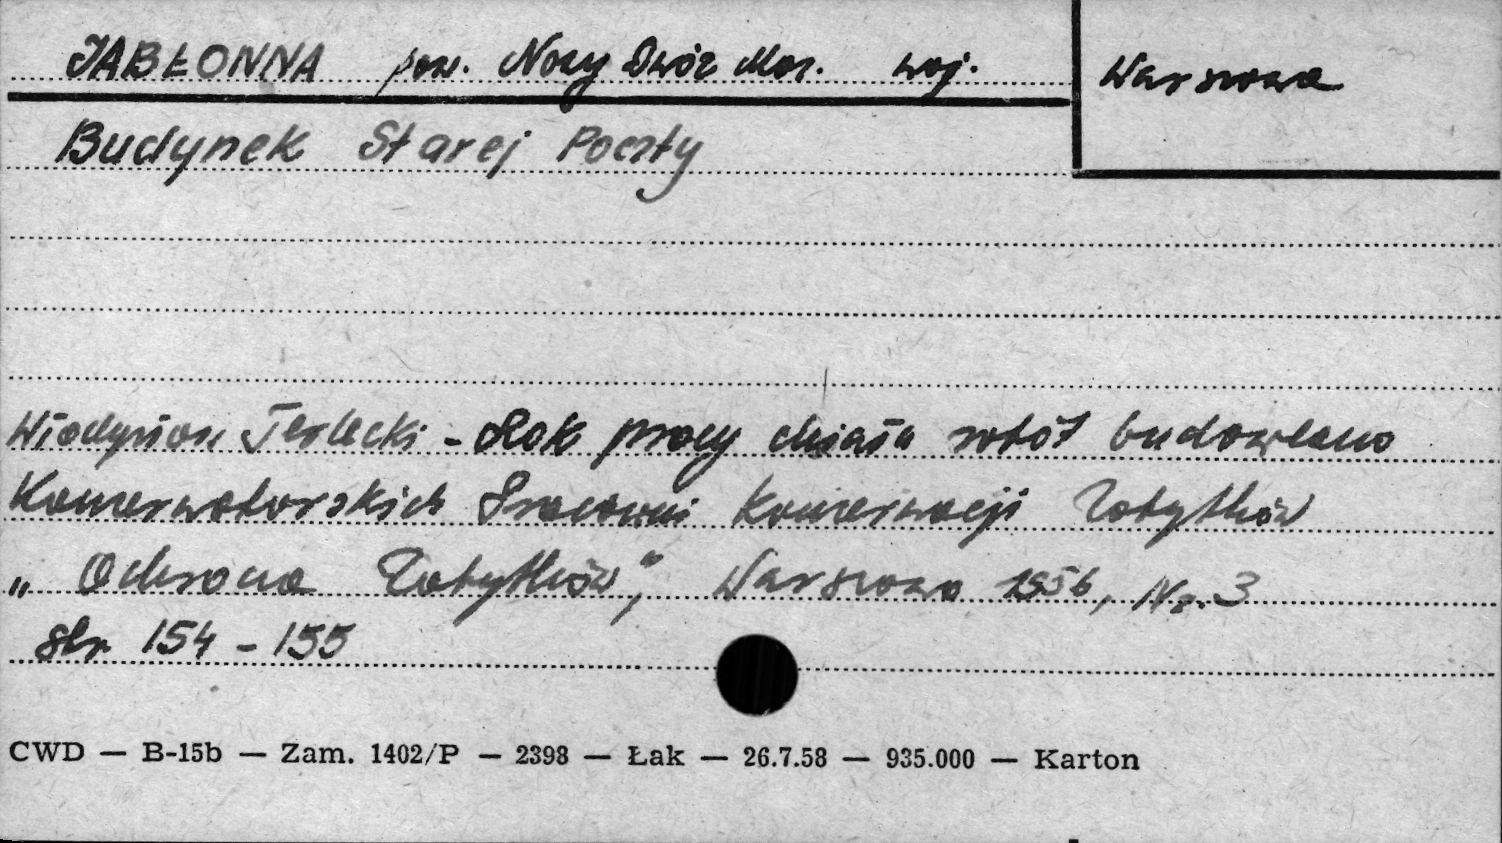 JABŁONNA pow. Nowy Dwór Maz. woj. Warszawa
Budynek Starej Poczty
Władysław Terlecki - Rok pracy działu robót budowlano
Konserwatorskich Pracowni Konserwacji Zabytków
„Ochrona Zabytków", Warszawa 1956, Nr. 3
str 154 - 155
CWD — B-15b — Zam. 1402/P — 2398 — Łak — 26.7.58 — 935.000 — Karton